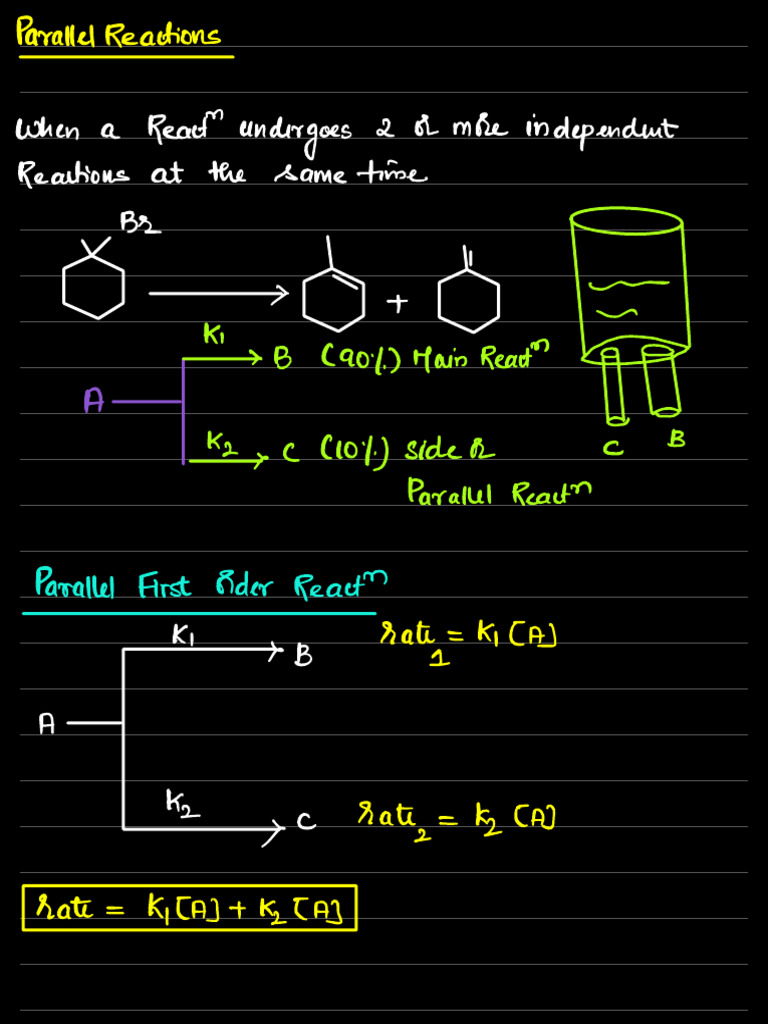 Parallel Reactions
When a Reactⁿ undergoes 2 or more independent
Reactions at the same time
Br
+
K₁
B (90%) Main Reactⁿ
A
K₂
C (10%) side or
Parallel Reactⁿ
C B
Parallel First Order Reactⁿ
K₁
B
rate₁ = K₁[A]
A
K₂
C
rate₂ = K₂[A]
rate = K₁[A] + K₂[A]